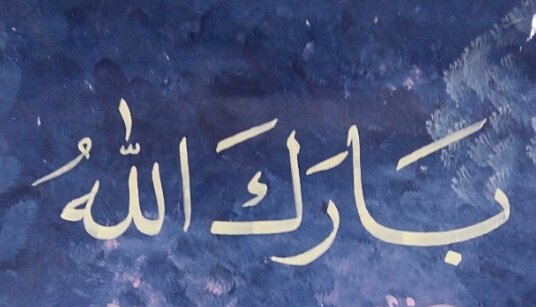 بَارَكَ اللّٰهُ